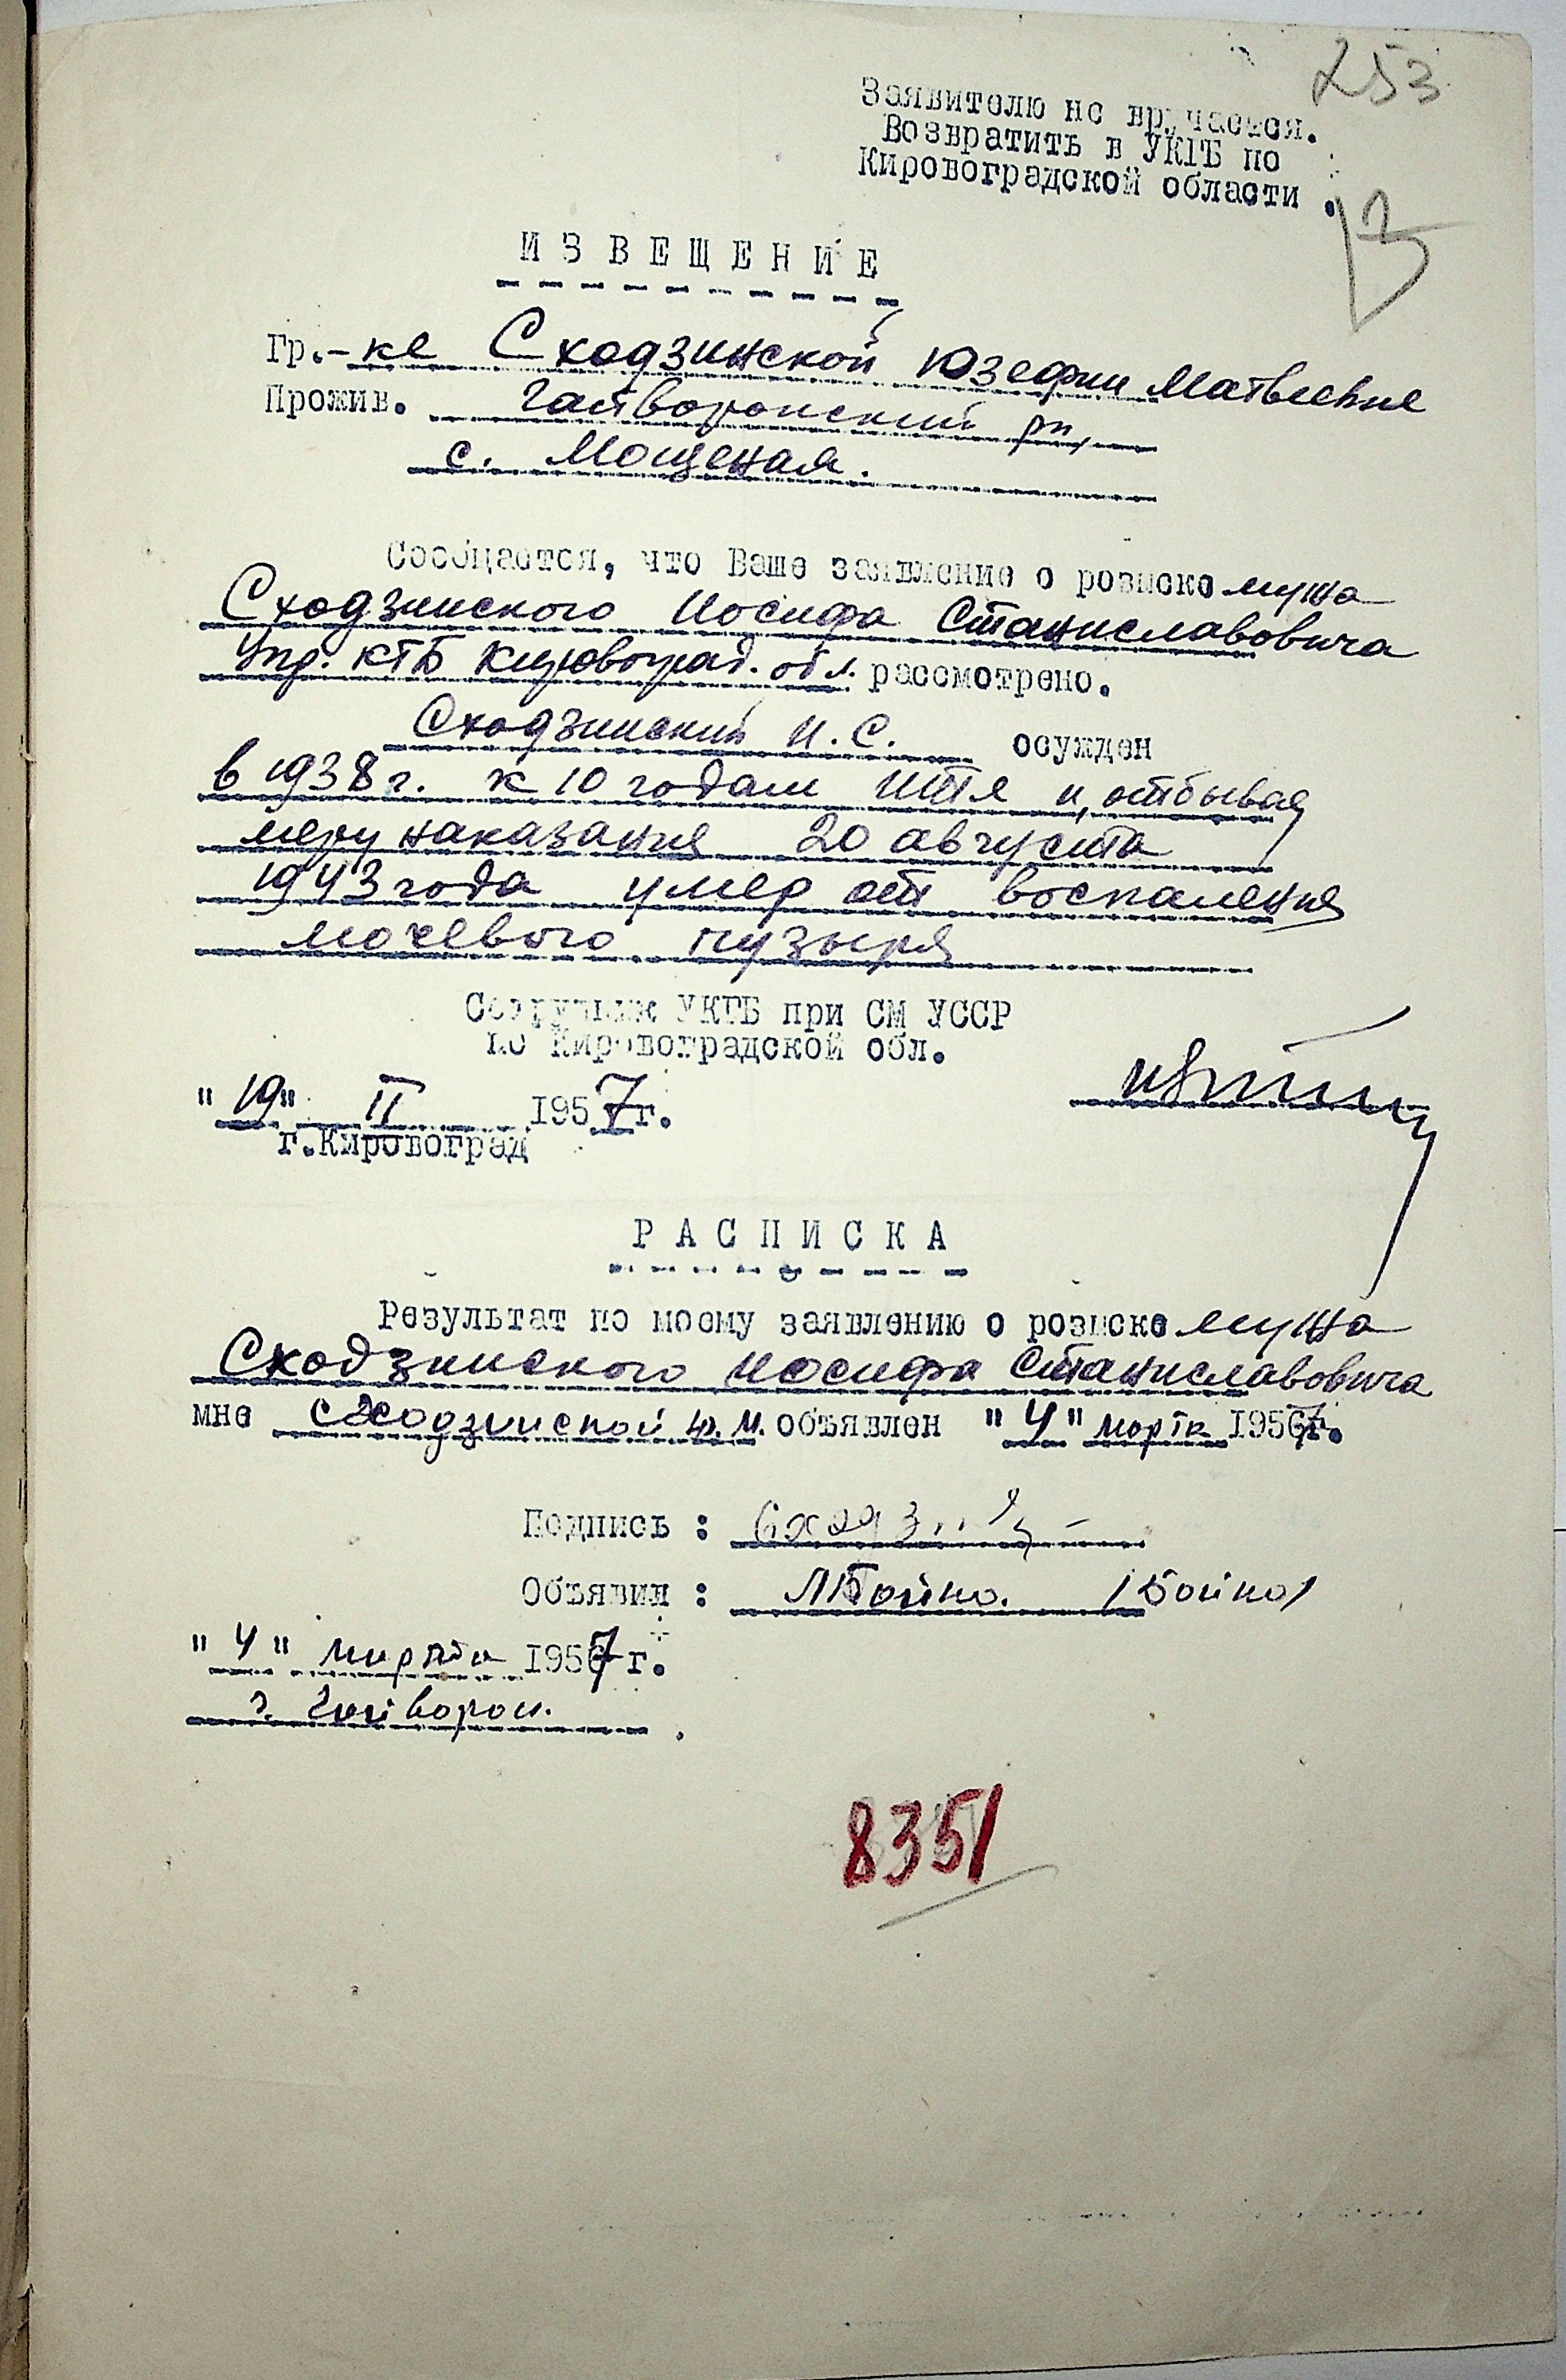 253
Заявителю не вручается.
Возвратить в УКГБ по
Кировоградской области.
ИЗВЕЩЕНИЕ
Гр.-ке Сходзинской Юзефии Матвеевне
Прожив. Гайворонский рн,
с. Мощеная.
Сообщается, что Ваше заявление о розыске мужа
Сходзинского Иосифа Станиславовича
Упр. КГБ Кировоград. обл. рассмотрено.
Сходзинский И.С. осужден
в 1938 г. к 10 годам ИТЛ и, отбывая
меру наказания 20 августа
1943 года умер от воспаления
мочевого пузыря
Сотрудник УКГБ при СМ УССР
по Кировоградской обл.
"19" II 1957 г.
г.Кировоград
РАСПИСКА
Результат по моему заявлению о розыске мужа
Сходзинского Иосифа Станиславовича
мне Сходзинской Ю.М. объявлен "4" марта 1957г.
Подпись :
Объявил : Л Бойко. /Бойко/
"4" марта 1957 г.
г. Гайворон.
8351